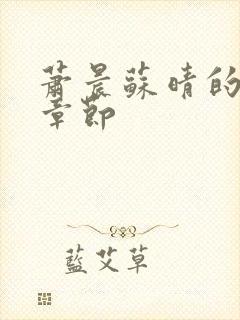 蕭晨蘇晴的
章節
藍艾草